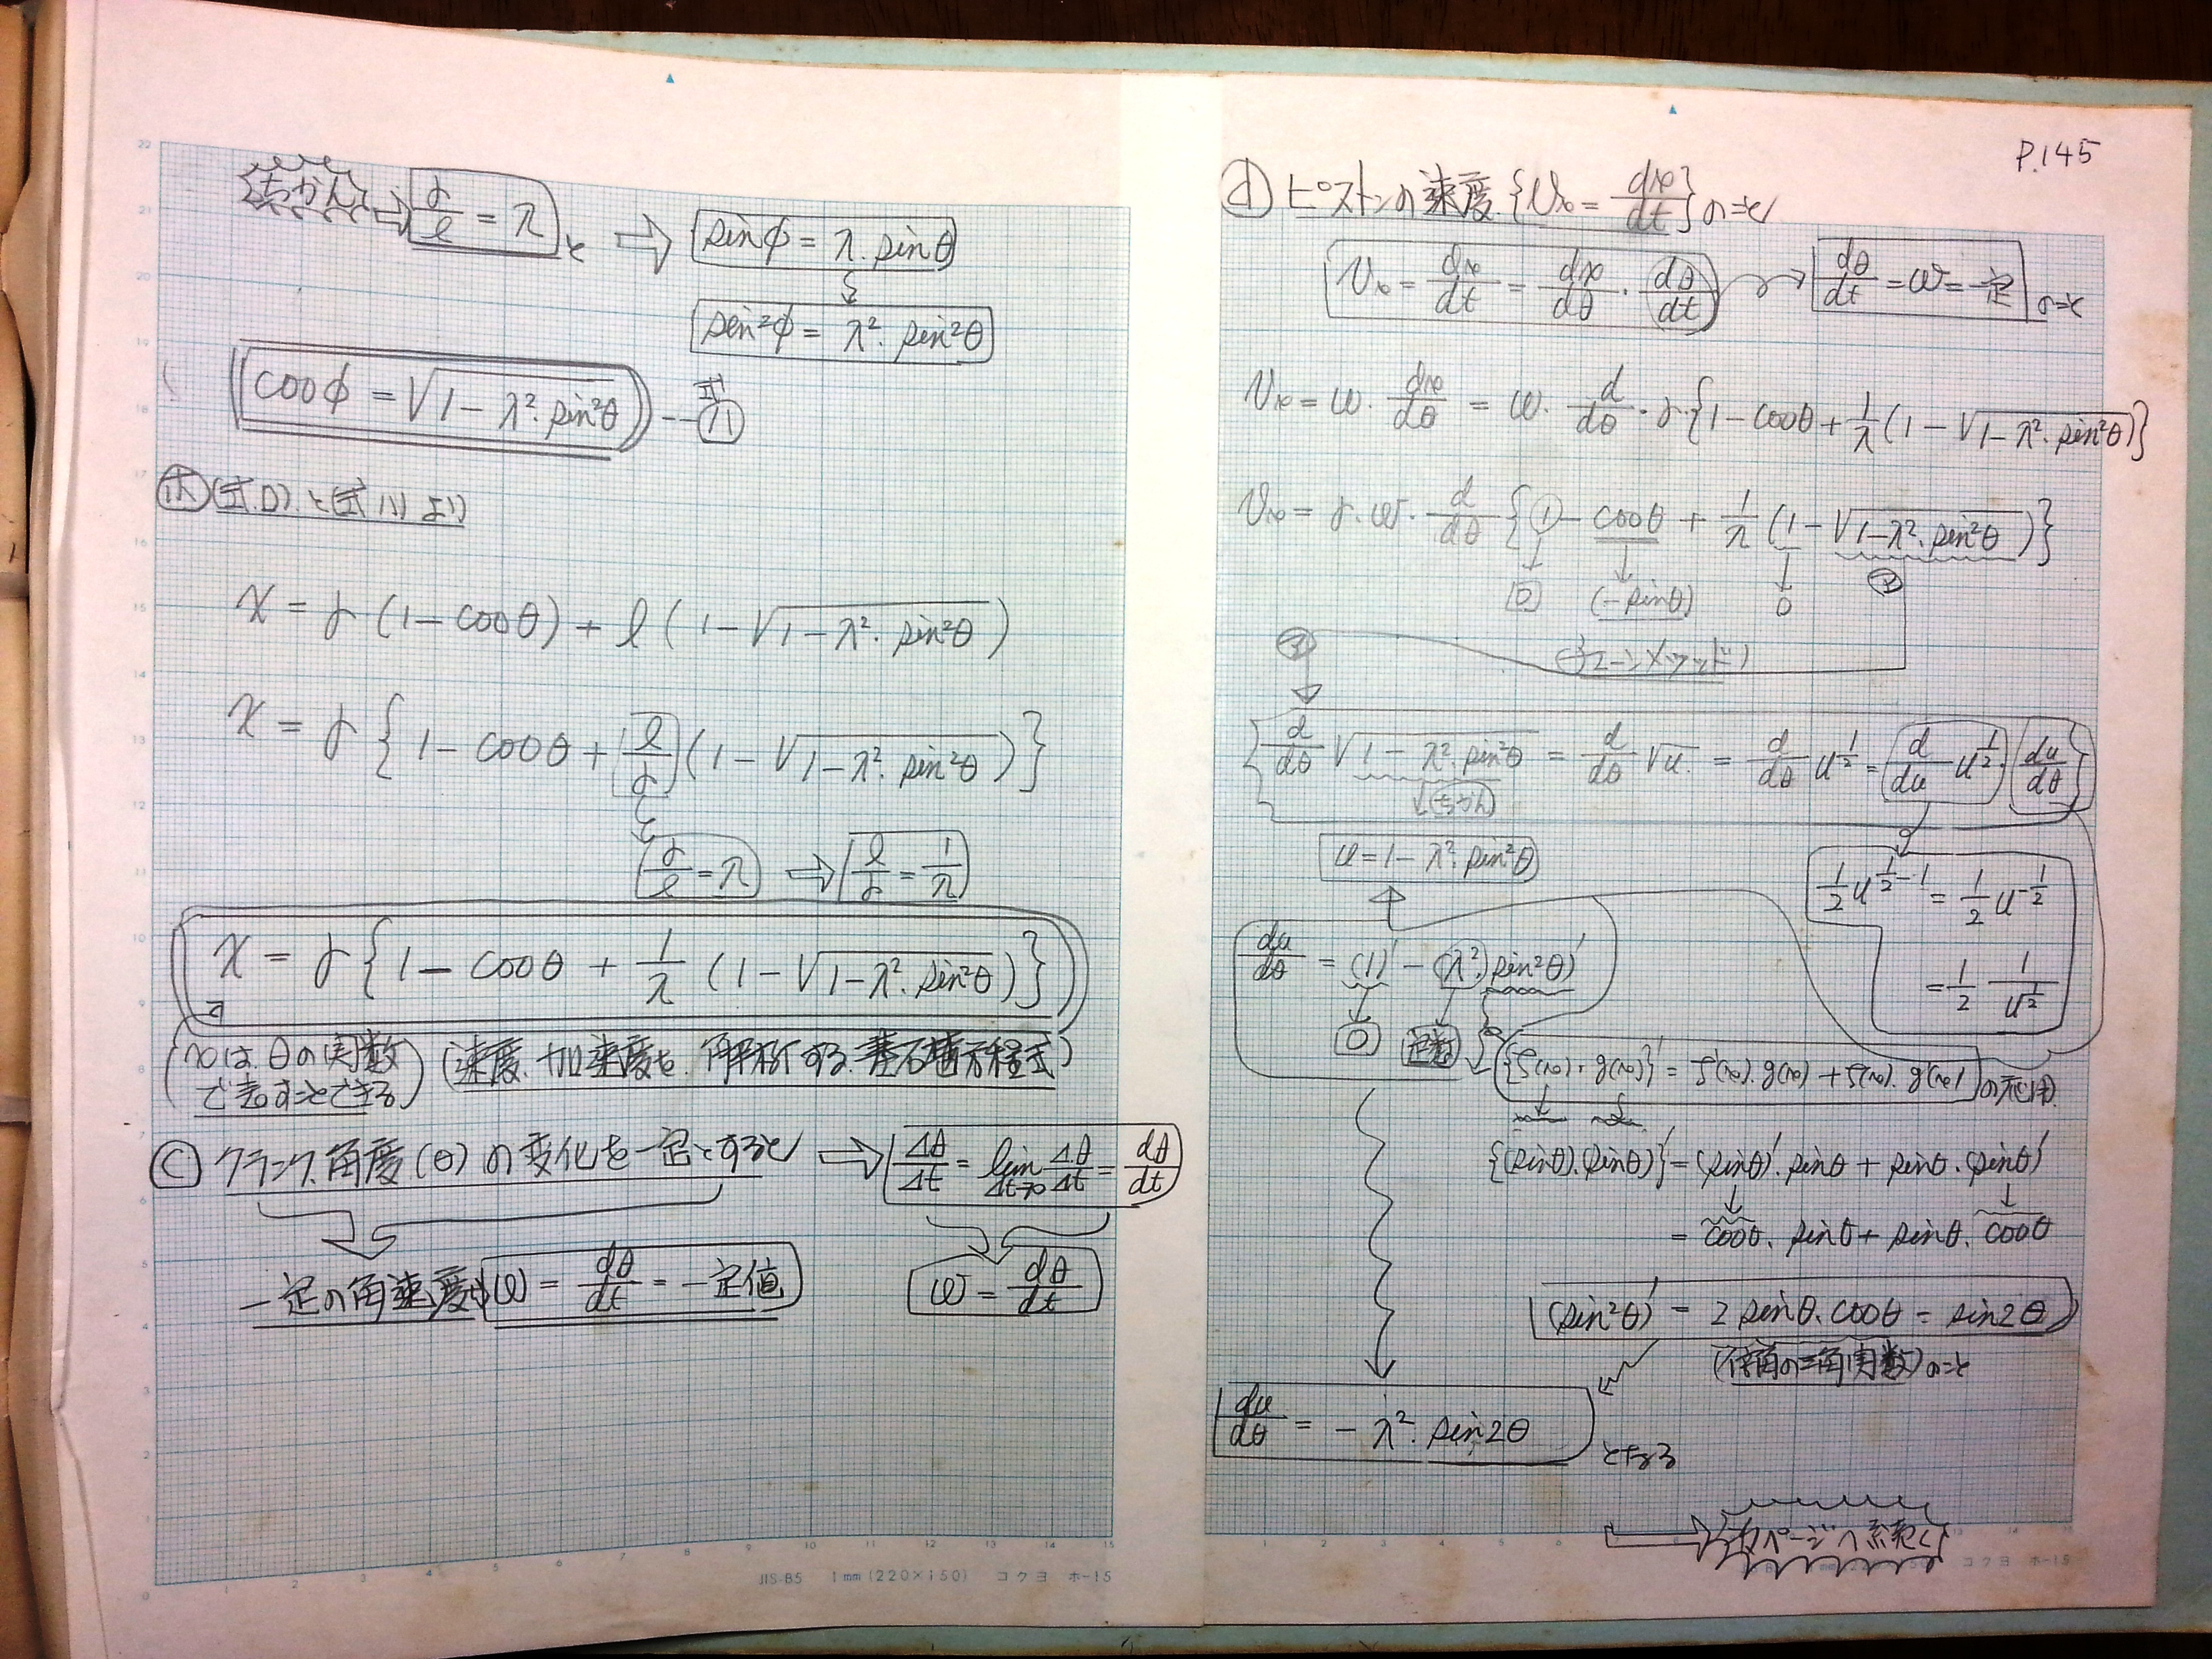 ちかん ⇒ r/l = λ と ⇒ sinφ = λ・sinθ
sin²φ = λ²・sin²θ
cosφ = √(1-λ²・sin²θ) --- 式ハ
㋭ (式ロ)と(式ハ)より
x = r(1-cosθ) + l(1-√(1-λ²・sin²θ))
x = r{1-cosθ + l/r (1-√(1-λ²・sin²θ))}
r/l = λ ⇒ l/r = 1/λ
x = r{1-cosθ + 1/λ (1-√(1-λ²・sin²θ))}
(xは、θの関数
で表すことできる)
(速度、加速度を、解析する、基石方程式)
ⓒ クランク角度(θ)の変化を一定とすると ⇒ Δθ/Δt = lim Δt→0 Δθ/Δt = dθ/dt
一定の角速度 ω = dθ/dt = 一定値
ω = dθ/dt
P.145
ⓓ ピストンの速度{Vx = dx/dt}のこと
Vx = dx/dt = dx/dθ・dθ/dt → dθ/dt = ω = 一定 のこと
Vx = ω・dx/dθ = ω・d/dθ・r{1-cosθ + 1/λ(1-√(1-λ²・sin²θ))}
Vx = r・ω・d/dθ{1-cosθ + 1/λ(1-√(1-λ²・sin²θ))}
0 (-sinθ) 0
(チェーンメソッド)
d/dθ √(1-λ²・sin²θ) = d/dθ √u = d/dθ u^(1/2) = d/du u^(1/2)・du/dθ
u = 1-λ²・sin²θ
1/2 u^(1/2-1) = 1/2 u^(-1/2)
= 1/2 1/u^(1/2)
du/dθ = (1)' - (λ²・sin²θ)'
0 定数
{f(x)・g(x)}' = f'(x)・g(x) + f(x)・g'(x)
{(sinθ)・(sinθ)}' = (sinθ)'・sinθ + sinθ・(sinθ)'
= cosθ・sinθ + sinθ・cosθ
(sin²θ)' = 2sinθ・cosθ = sin2θ
(倍角の三角関数)のこと
du/dθ = -λ²・sin2θ となる
次ページへ続く
JIS-B5 1mm(220×150) コクヨ ホ-15
コクヨ ホ-15